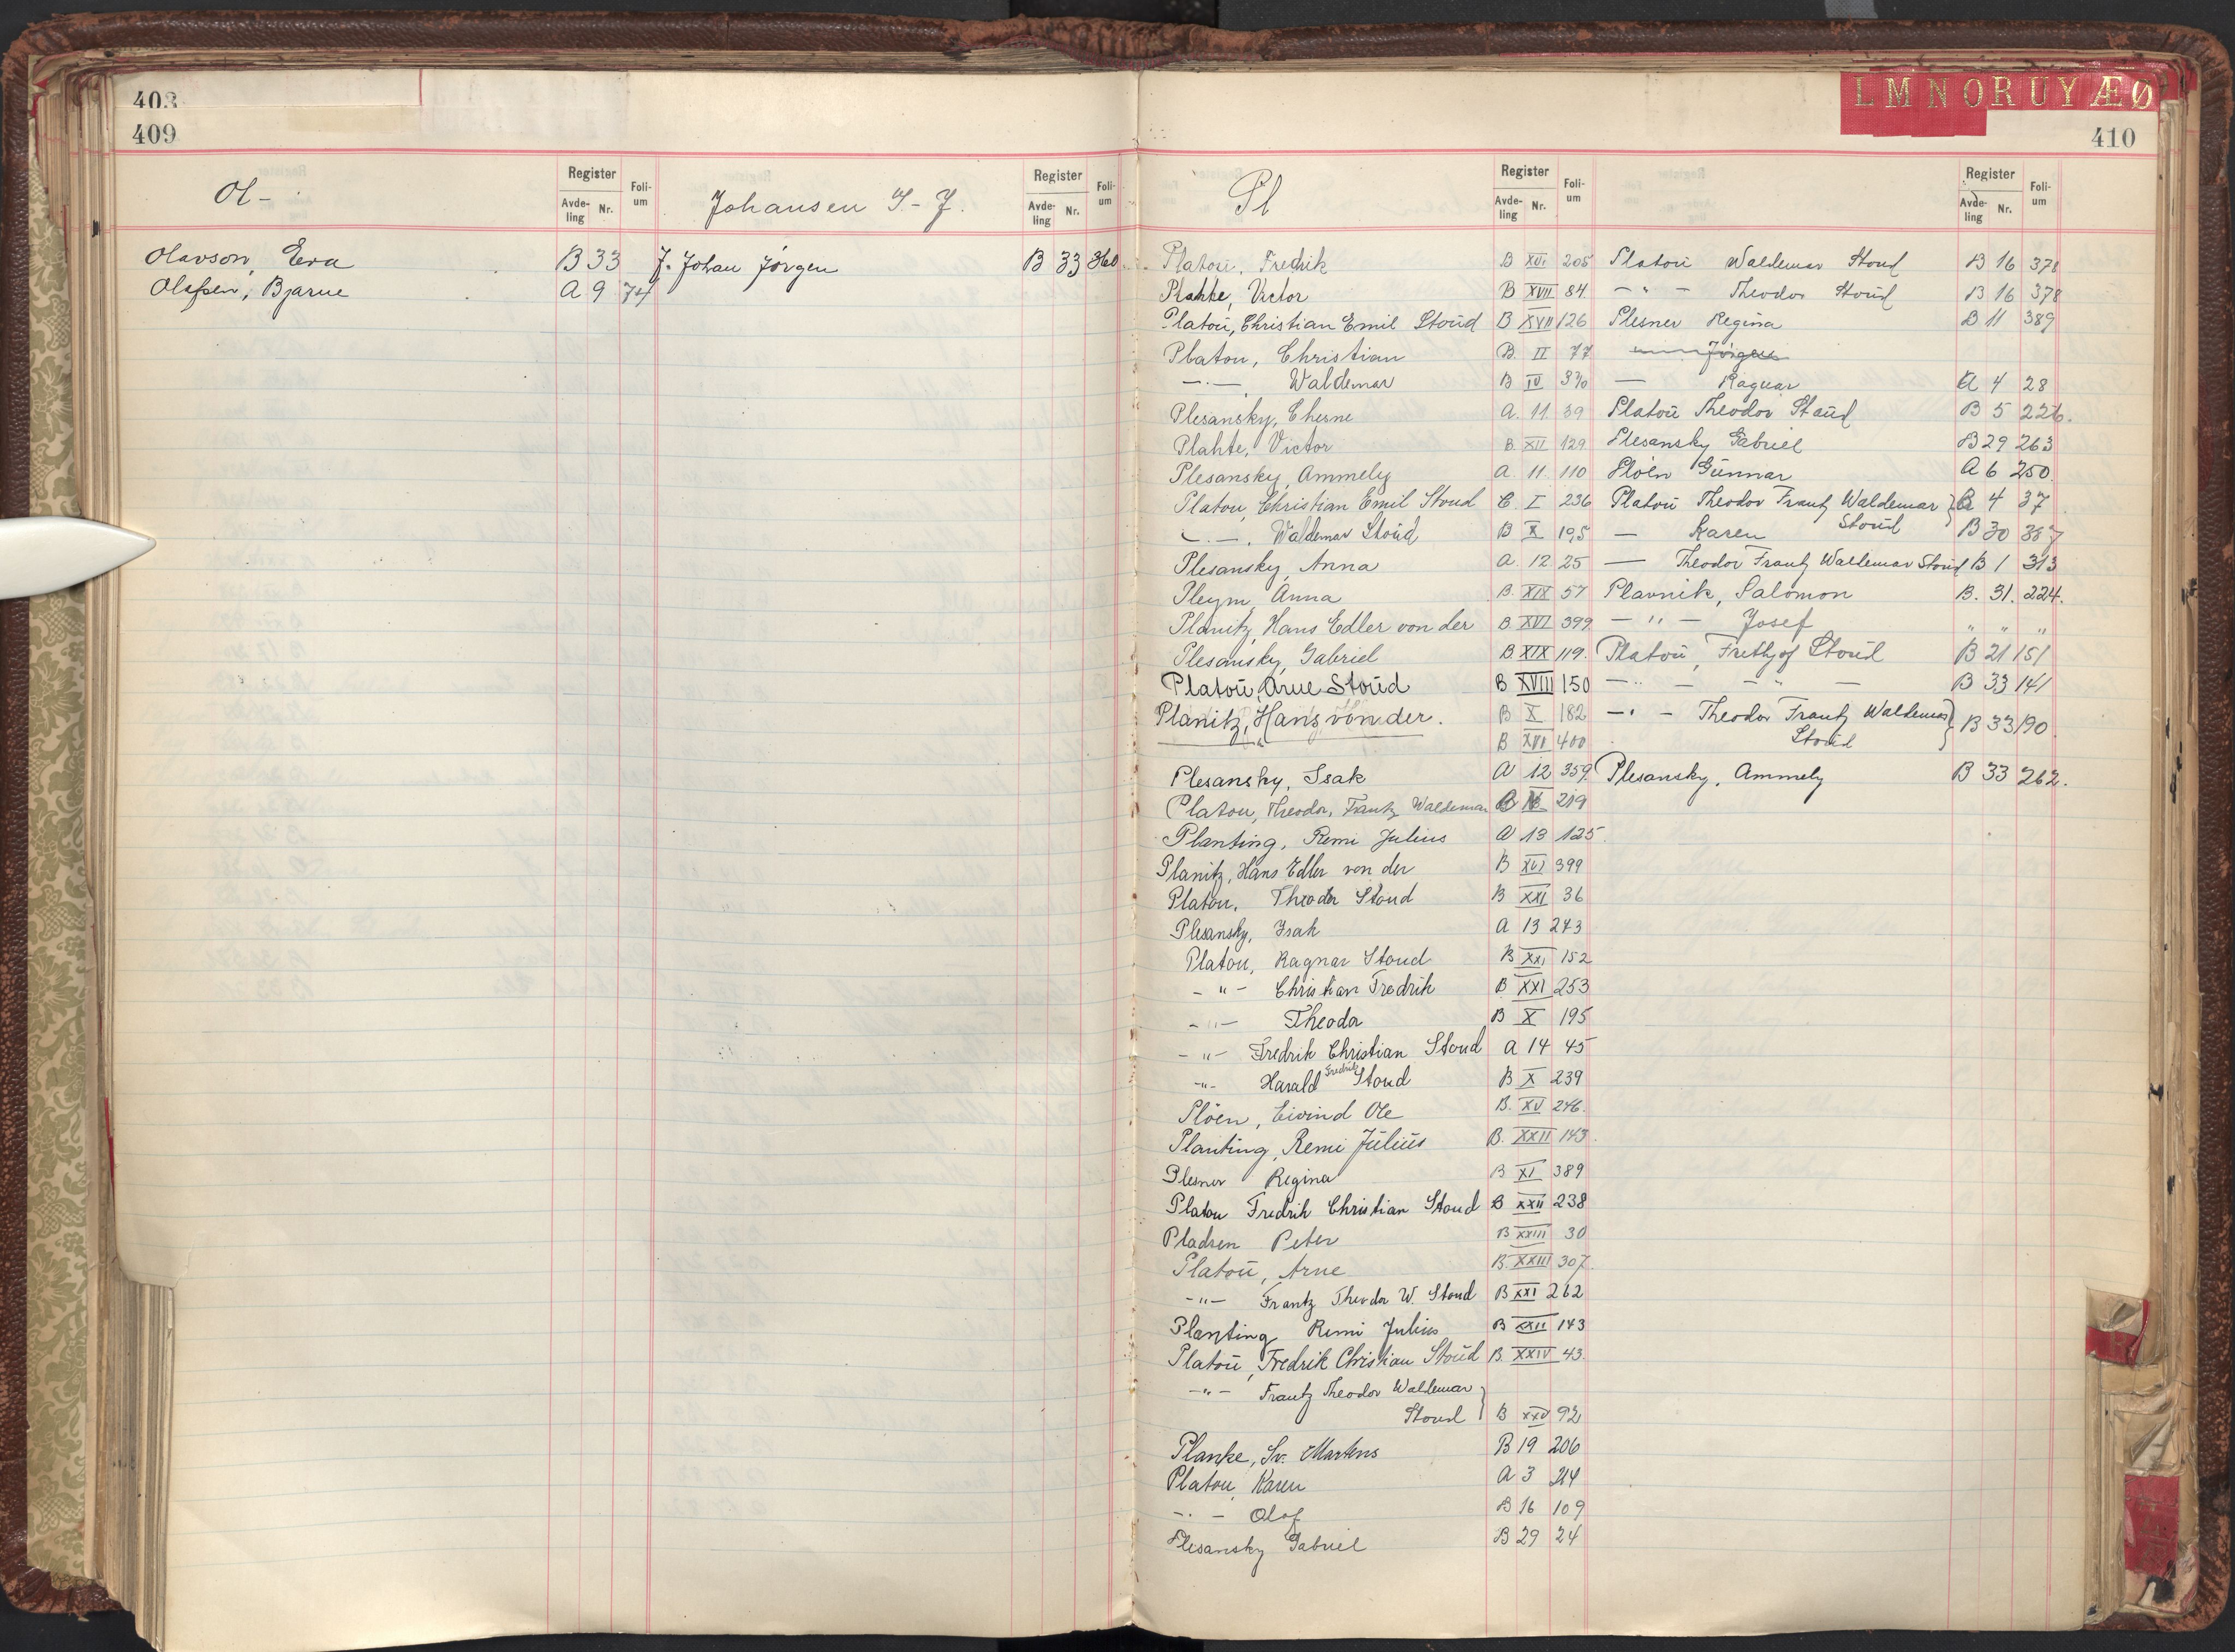 403
409
Ol-
Register
Avdeling Nr.
Folium
Johansen I-J.
Register
Avdeling Nr.
Folium
Olavson, Eva B 33
Olssen, Bjarne A 9 74
J. Johan Jörgen B 33 360
L M N O R U Y Æ Ø
410
Pl
Register
Avdeling Nr.
Folium
Register
Avdeling Nr.
Folium
Platou, Fredrik B XVI 205
Plahte, Victor B XVII 84
Platou, Christian Emil Stoud B XVII 126
Platou, Christian B. II 77
-"- Waldemar B IV 370
Plesansky, Cherne A. 11 39
Plahte, Victor B. XII 129
Plesansky, Ammely A. 11. 110
Platou, Christian Emil Stoud C. I 236
-"-. Waldemar Stoud B X 195
Plesansky, Anna A. 12. 25
Pleym, Anna B. XIX 57
Planitz, Hans Edler von der B. XVI 399
Plesansky, Gabriel B. XIX 119.
Platou, Arne Stoud B XVIII 150
Planitz, Hans von der. B X 182
B XVI 400
Plesansky, Isak A 12 359
Platou, Theodor, Frantz Waldemar B 219
Planting, Remi Julius A 13 125
Planitz, Hans Edler von der B XVI 399
Platou, Theodor Stoud B XXI 36
Plesansky, Isak A 13 243
Platou, Ragnar Stoud B XXI 152
-"- Christian Fredrik B XXI 253
-"- Theodor B X 195
-"- Fredrik Christian Stoud A 14 45
-"- Harald Fredrik Stoud B X 239
Plöen, Eivind Ole B. XV 246.
Planting, Remi Julius B. XXII 143.
Plesner Regina B XI 389
Platou Fredrik Christian Stoud B XXII 238
Pladsen Peter B XXIII 30
Platou, Arne B. XXIII 307.
-"- Frantz Theodor W. Stoud B XXI 262
Planting Remi Julius B XXII 143
Platou, Fredrik Christian Stoud B. XXIV 43.
-"- Frantz Theodor Waldemar
Stoud B XXV 92
Planke, Sv. Martens B 19 206
Platou, Karen A 3 214
-"- Olaf B 16 109
Plesansky Gabriel B 29 24
Platou Waldemar Stoud B 16 378
-"- Theodor Stoud B 16 378
Plesner Regina B 11 389
Jörgen
— Ragnar A 4 28
Platou Theodor Stoud B 5 226.
Plesansky Gabriel B 29 263
Plöen Gunnar A 6 250.
Platou Theodor Frantz Waldemar 4 37
Stoud
— Karen B 30 387
— Theodor Frantz Waldemar Stoud B 1 313
Plavnik, Salomon B. 31. 224.
-"- Josef " " "
Platou, Frithjof Stoud B 21 151
-"- -"- B 33 141
-"- Theodor Frantz Waldemar
Stoud B 33 190.
Plesansky, Ammely B 33 262.